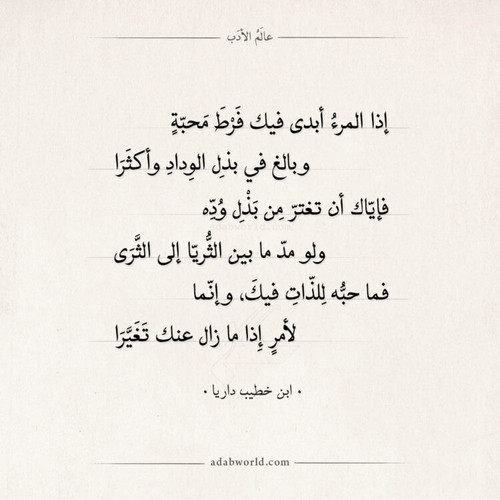 عالَمُ الأدَب
إذا المرءُ أبدى فيك فَرْطَ مَحبّةٍ
وبالغ في بذلِ الوِدادِ وأكثَرَا
فإيّاك أن تغترّ مِن بَذْلِ وُدِّه
adabworld.com
ولو مدّ ما بين الثُّريّا إلى الثَّرَى
فما حبُّه لِلذّاتِ فيكَ، وإنّما
لأمرٍ إِذا ما زال عنك تَغَيَّرَا
• ابن خطيب داريا •
adabworld.com